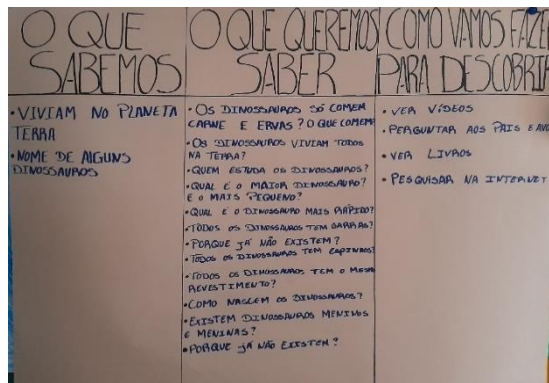 O QUE
SABEMOS
• VIVIAM NO PLANETA
TERRA
• NOME DE ALGUNS
DINOSSAUROS
O QUE QUEREMOS
SABER
• OS DINOSSAUROS SÓ COMEM
CARNE E ERVAS? O QUE COMEM?
• OS DINOSSAUROS VIVIAM TODOS
NA TERRA?
• QUEM ESTUDA OS DINOSSAUROS?
• QUAL É O MAIOR DINOSSAURO?
E O MAIS PEQUENO?
• QUAL É O DINOSSAURO MAIS RÁPIDO?
• TODOS OS DINOSSAUROS TEM GARRAS?
• PORQUE JÁ NÃO EXISTEM?
• TODOS OS DINOSSAUROS TEM ESPINHOS?
• TODOS OS DINOSSAUROS TEM O MESMO
REVESTIMENTO?
• COMO NASCEM OS DINOSSAUROS?
• EXISTEM DINOSSAUROS MENINOS
E MENINAS?
• PORQUE JÁ NÃO EXISTEM?
COMO VAMOS FAZE
PARA DESCOBRIR
• VER VÍDEOS
• PERGUNTAR AOS PAIS E AVÓ
• VER LIVROS
• PESQUISAR NA INTERNET